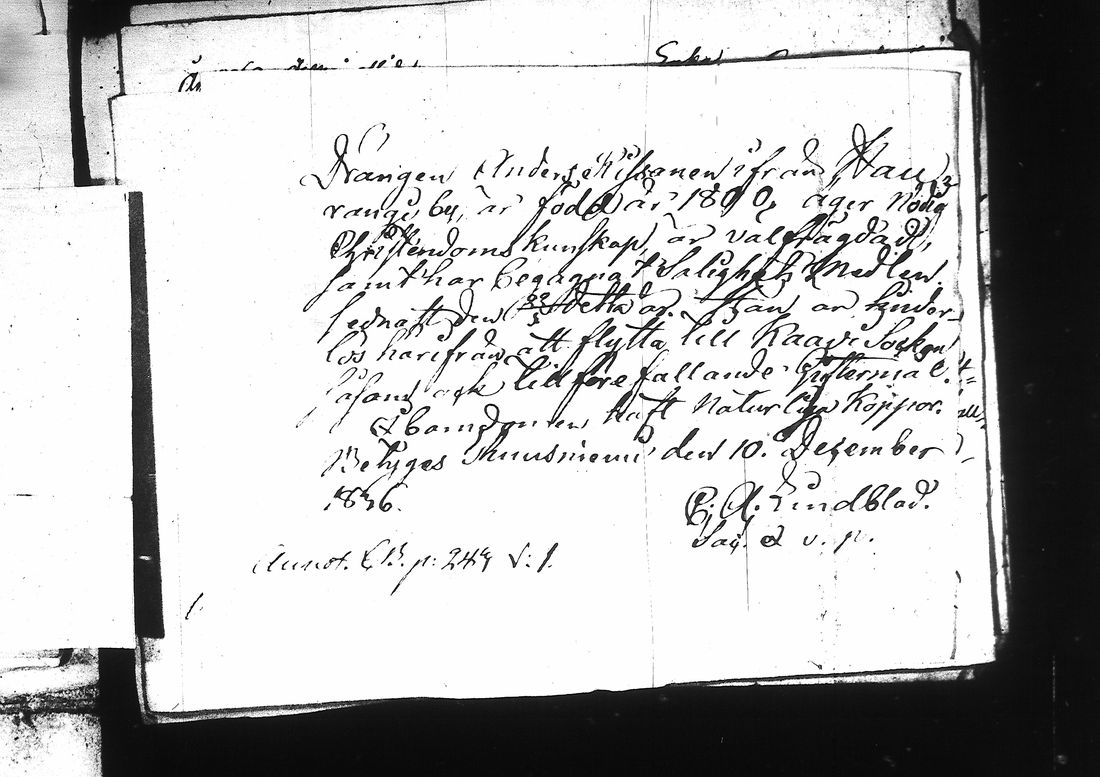 Drängen Anders Kissanen ifrån Hau
range by, är född år 1810, äger Nödig
Christendoms kunskap, är välfrägdad,
samt har begagnat Salighets Medlen
sednast den 22/5 detta år. Han är hinder-
lös härifrån att flytta till Kaavi Socken
såsom ock till förefallande Giftermål.
I barndomen haft Naturliga Koppor.
Betygas Kuusniemi den 10. December
1836.
P. A. Lindblad.
Sac. & v. p.
Annot. CB. p: 249